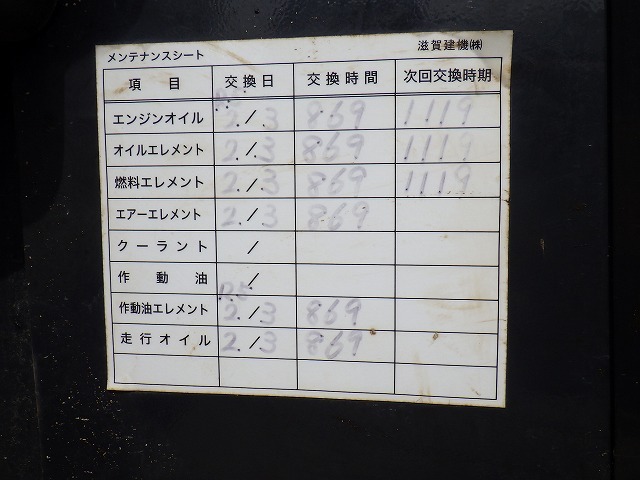 メンテナンスシート 滋賀建機㈱
項目 交換日 交換時間 次回交換時期
エンジンオイル 2/3 869 1119
オイルエレメント 2/3 869 1119
燃料エレメント 2/3 869 1119
エアーエレメント 2/3 869
クーラント /
作動油 /
作動油エレメント 2/3 869
走行オイル 2/3 869